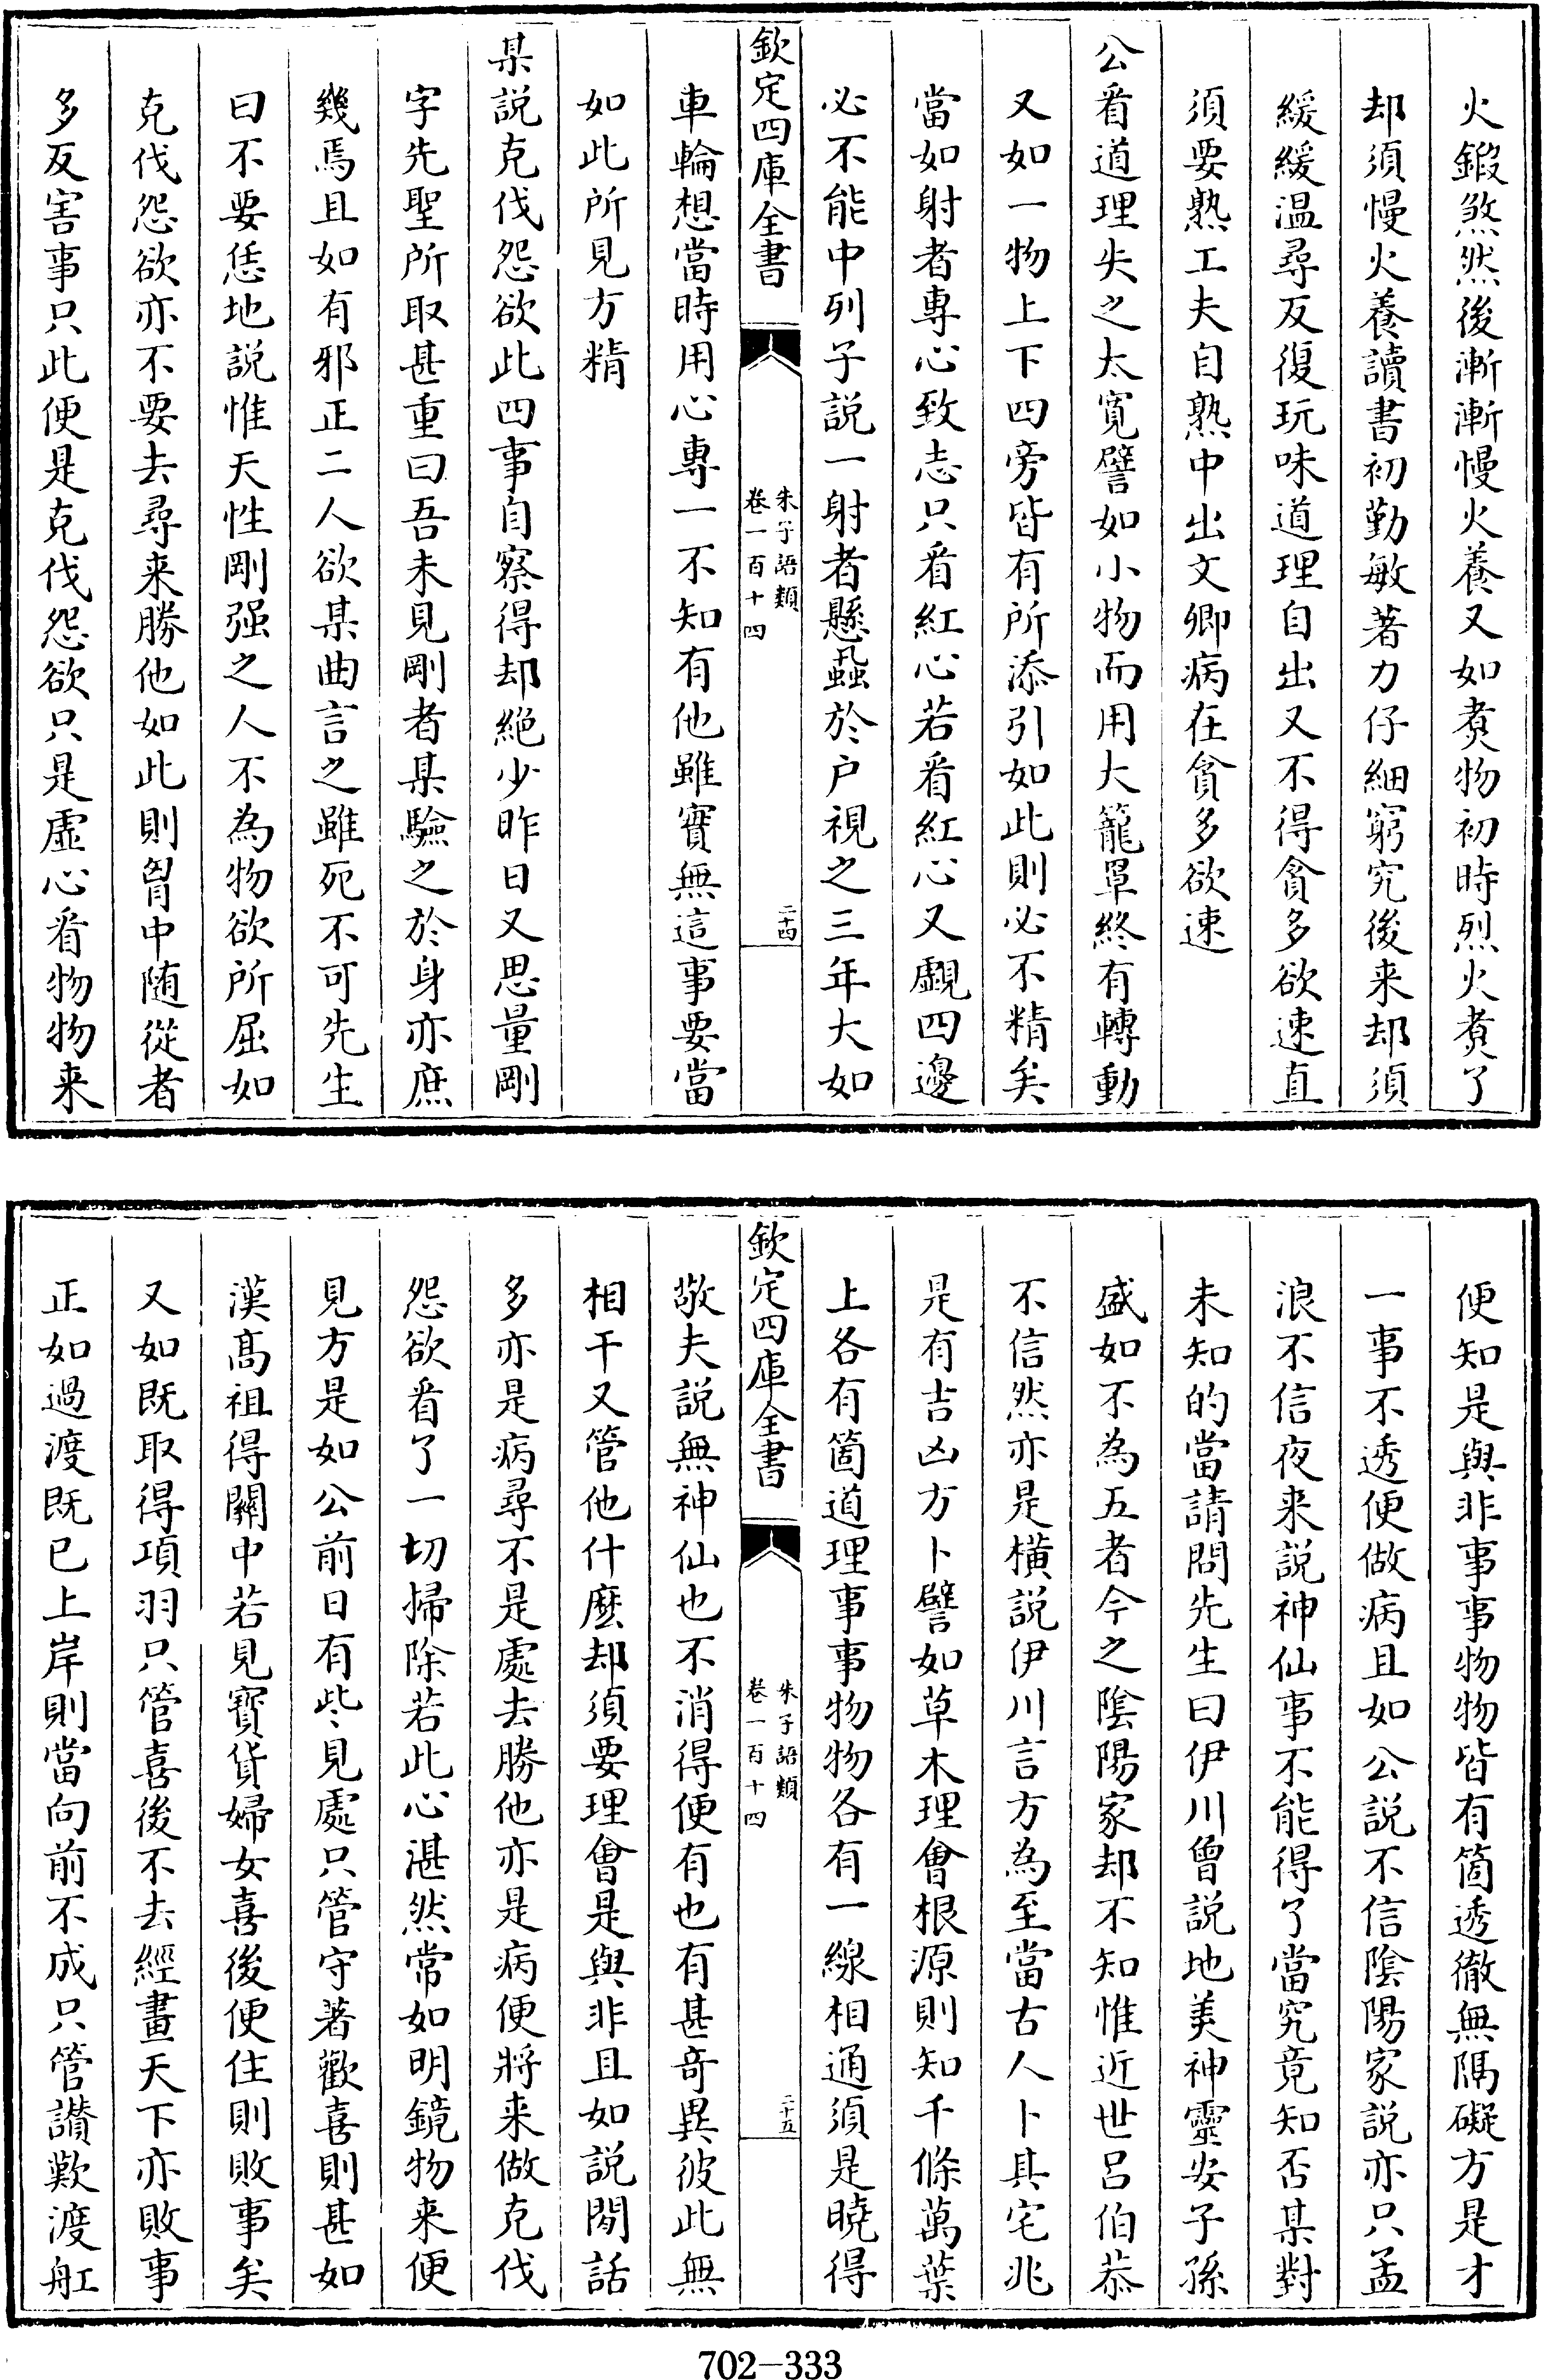 火鍛煞然後漸漸慢火養又如煑物初時烈火煑了
却須慢火養讀書初勤敏著力仔細窮究後来却須
緩緩温尋反復玩味道理自出又不得貪多欲速直
須要熟工夫自熟中出文卿病在貪多欲速
公㸔道理失之太寛譬如小物而用大籠罩終有轉動
又如一物上下四旁皆有所添引如此則必不精矣
當如射者專心致志只㸔紅心若㸔紅心又覷四邊
必不能中列子説一射者懸蝨於户視之三年大如
欽定四庫全書
朱子語類
卷一百十四
二十四
車輪想當時用心專一不知有他雖實無這事要當
如此所見方精
某説克伐怨欲此四事自察得却絶少昨日又思量剛
字先聖所取甚重曰吾未見剛者某驗之於身亦庶
幾焉且如有邪正二人欲某曲言之雖死不可先生
曰不要恁地説惟天性剛强之人不為物欲所屈如
克伐怨欲亦不要去尋来勝他如此則胷中随從者
多反害事只此便是克伐怨欲只是虚心㸔物物来
便知是與非事事物物皆有箇透徹無隔礙方是才
一事不透便做病且如公説不信隂陽家説亦只孟
浪不信夜来説神仙事不能得了當究竟知否某對
未知的當請問先生曰伊川曽説地美神靈安子孫
盛如不為五者今之隂陽家却不知惟近世吕伯恭
不信然亦是横説伊川言方為至當古人卜其宅兆
是有吉凶方卜譬如草木理㑹根源則知千條萬葉
上各有箇道理事事物物各有一線相通須是曉得
欽定四庫全書
朱子語類
卷一百十四
二十五
敬夫説無神仙也不消得便有也有甚竒異彼此無
相干又管他什麽却須要理㑹是與非且如説閒話
多亦是病尋不是處去勝他亦是病便將来做克伐
怨欲㸔了一切掃除若此心湛然常如明鏡物来便
見方是如公前日有些見處只管守著歡喜則甚如
漢髙祖得闗中若見寳貨婦女喜後便住則敗事矣
又如既取得項羽只管喜後不去經畫天下亦敗事
正如過渡既已上岸則當向前不成只管讃歎渡舡
702-333